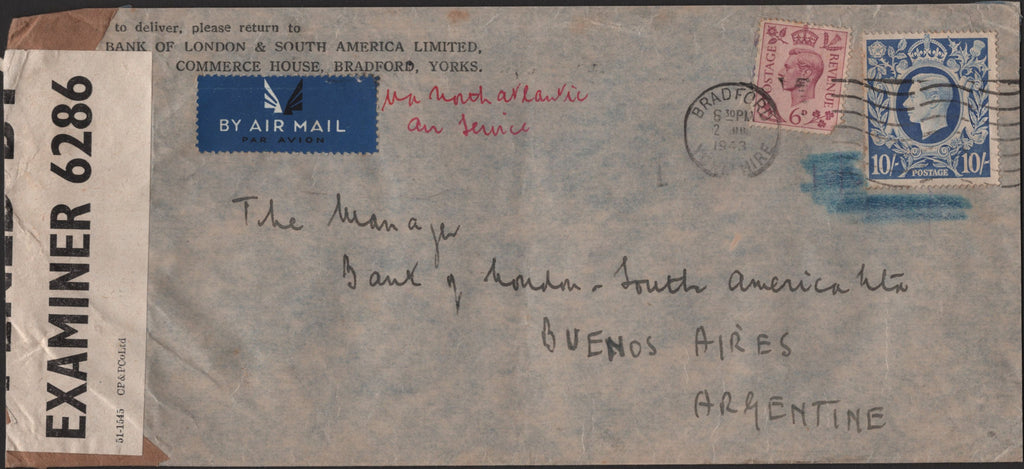 to deliver, please return to
BANK OF LONDON & SOUTH AMERICA LIMITED,
COMMERCE HOUSE, BRADFORD, YORKS.
BY AIR MAIL
PAR AVION
Via North Atlantic
Air Service
POSTAGE REVENUE
6D
10/- POSTAGE 10/-
BRADFORD
6 30 PM
2
1943
The Manager
Bank of London & South America Ltd
BUENOS AIRES
ARGENTINE
EXAMINER 6286
51-1545 CP&PCoLtd